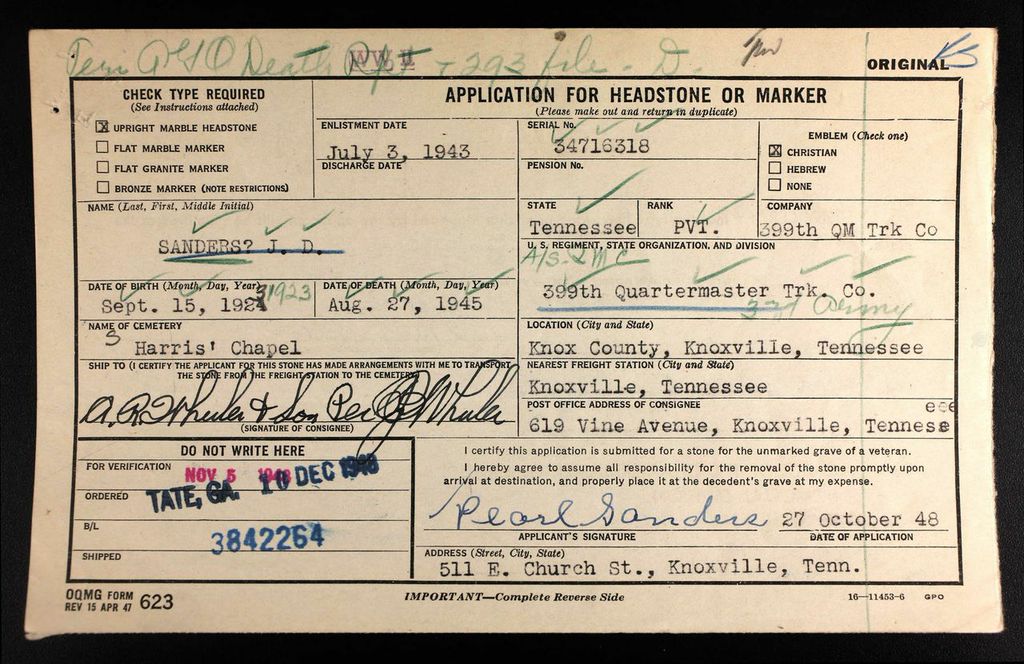 AGO Death Rpt + 293 file - D.
WW II
ORIGINAL KS
CHECK TYPE REQUIRED
(See Instructions attached)
☒ UPRIGHT MARBLE HEADSTONE
☐ FLAT MARBLE MARKER
☐ FLAT GRANITE MARKER
☐ BRONZE MARKER (NOTE RESTRICTIONS)
APPLICATION FOR HEADSTONE OR MARKER
(Please make out and return in duplicate)
ENLISTMENT DATE
July 3, 1943
DISCHARGE DATE
SERIAL No.
34716318
PENSION No.
EMBLEM (Check one)
☒ CHRISTIAN
☐ HEBREW
☐ NONE
NAME (Last, First, Middle Initial)
SANDERS? J. D.
STATE
Tennessee
RANK
PVT.
COMPANY
399th QM Trk Co
U. S. REGIMENT, STATE ORGANIZATION, AND DIVISION
A/S-QMC
399th Quartermaster Trk. Co.
37th Army
DATE OF BIRTH (Month, Day, Year)
Sept. 15, 1924 1923
DATE OF DEATH (Month, Day, Year)
Aug. 27, 1945
NAME OF CEMETERY
S Harris' Chapel
LOCATION (City and State)
Knox County, Knoxville, Tennessee
SHIP TO (I CERTIFY THE APPLICANT FOR THIS STONE HAS MADE ARRANGEMENTS WITH ME TO TRANSPORT
THE STONE FROM THE FREIGHT STATION TO THE CEMETERY)
A. R. Wheeler & Son Per J P Wheeler
(SIGNATURE OF CONSIGNEE)
NEAREST FREIGHT STATION (City and State)
Knoxville, Tennessee
POST OFFICE ADDRESS OF CONSIGNEE
ese
619 Vine Avenue, Knoxville, Tennese
DO NOT WRITE HERE
FOR VERIFICATION
NOV 5 1948
ORDERED
TATE, GA. 10 DEC 1948
B/L
3842264
SHIPPED
I certify this application is submitted for a stone for the unmarked grave of a veteran.
I hereby agree to assume all responsibility for the removal of the stone promptly upon
arrival at destination, and properly place it at the decedent's grave at my expense.
Pearl Sanders 27 October 48
APPLICANT'S SIGNATURE DATE OF APPLICATION
ADDRESS (Street, City, State)
511 E. Church St., Knoxville, Tenn.
OQMG FORM
REV 15 APR 47 623
IMPORTANT—Complete Reverse Side
16—11453-6 GPO